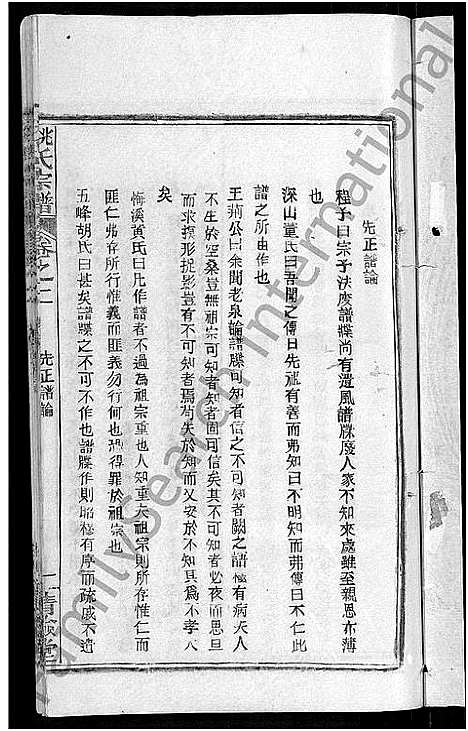 先正譜論
程子曰宗子法廢譜牒尚有遺風譜牒廢人家不知來處雖至親恩亦薄
也
深山董氏曰吾聞之傳曰先祖有善而弗知曰不明知而弗傳曰不仁此
譜之所由作也
王荊公曰余聞老泉論譜牒可知者信之不可知者闕之譜極有病夫人
不生於空桑豈無祖宗可知者知者固可信矣其不可知者必夜而思旦
而求摸形捉影豈有不可知者焉苟失於知而又安於不知其為不孝大
矣
梅溪黃氏曰凡作譜者不過為祖宗重也人知重夫祖宗則所存惟仁而
匪仁弗存所行惟義而匪義勿行何也恐得罪於祖宗也
五峰胡氏曰甚矣譜牒之不可不作也譜牒作則昭穆有序而疏戚不遺
姚氏宗譜 卷之一
先正譜論
一
FamilySearch International